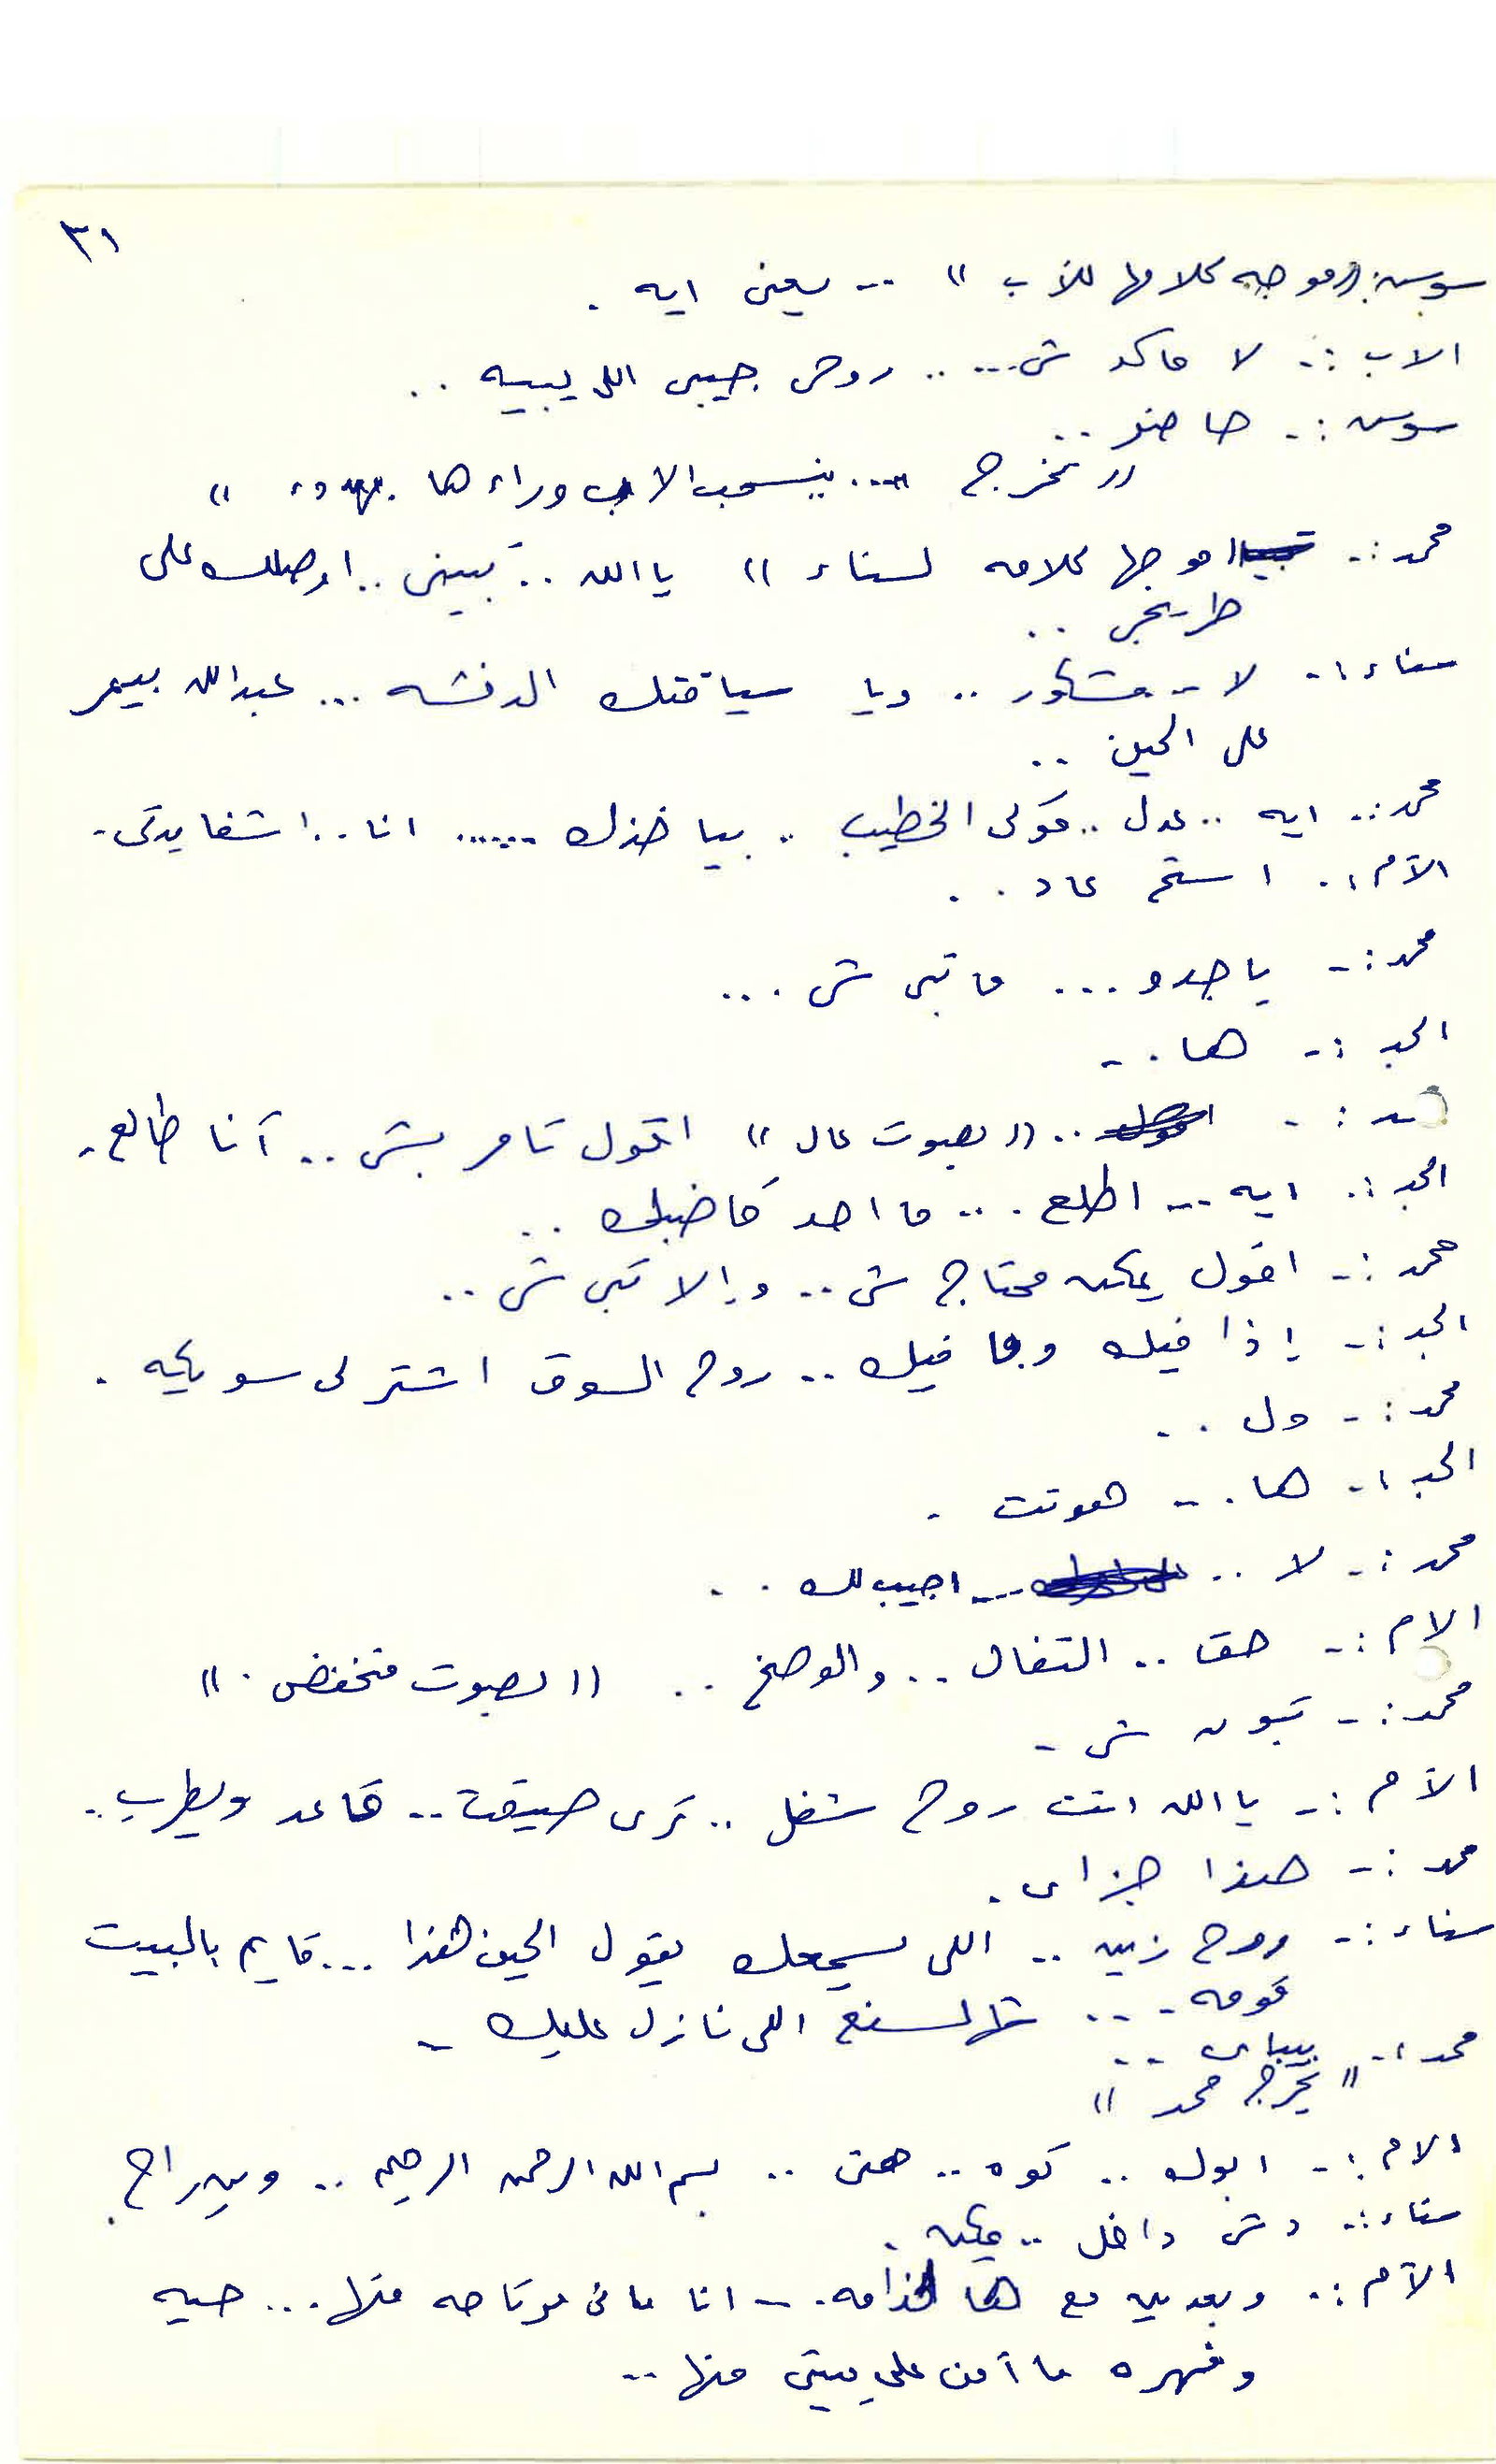 ٣١
سوسن: ((موجه كلامها للأب )) .. يعني ايه .
الاب :- لا ماكد شي .... روحي جيبي اللي يبيه ..
سوسن :- حاضر ..
(( تخرج .... ينسحب الاب وراءها بهدوء ))
محمد :- موجها كلامه لسناء )) يا الله .. تبيني .. اوصلك على
طريجي ..
سناء :- لا - مشكور .. ويا سياقتك الدفشه ... عبدالله بيمر
على الحين ..
محمد :- ايه .. عدل .. قولي الخطيب .. بياخذك ...... انا .. اشفايدتي -
الأم :- استح عاد ..
محمد :- يا جدو ... ما تبي شي ...
الجد :- ها . -
مد :- .. (( بصوت عال )) اقول تامر بشي .. آنا طالع .
الجد :- ايه ... اطلع .... ما احد قاضبك ..
محمد :- اقول يمكن محتاج شي .. وإلا تبي شي ..
الجد :- إذا فيك وما فيك .. روح السوق اشتر لي سويكه .
محمد :- ول ..
الجد :- ها . - هونت .
محمد :- لا .. ... اجيب لك ..
الام :- حق .. التفال .. والوصخ .. (( بصوت منخفض . ))
محمد :- تبون شي -
الأم :- يا الله انت روح شغل .. ترى صيقت .. قاعد ويطرب ..
محمد :- هذا جزاي .
سناء :- روح زين .. اللي يسمعك يقول الحين هذا ... قايم بالبيت
قومه - .. شالسنع اللي نازل عليك -
محمد :- بيباي ..
" يخرج محمد ))
الام :- ابوك .. توه .. هني .. بسم الله الرحمن الرحيم .. وين راح .
سناء :- دش داخل .. يمكن .
الأم :- وبعدين مع ها الخدامه . - انا ماني مرتاحه منها ... حيه
وفهره ما آمن على بيتي منها ..